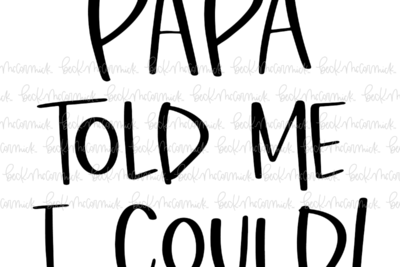 PAPA
TOLD ME
I COULD!